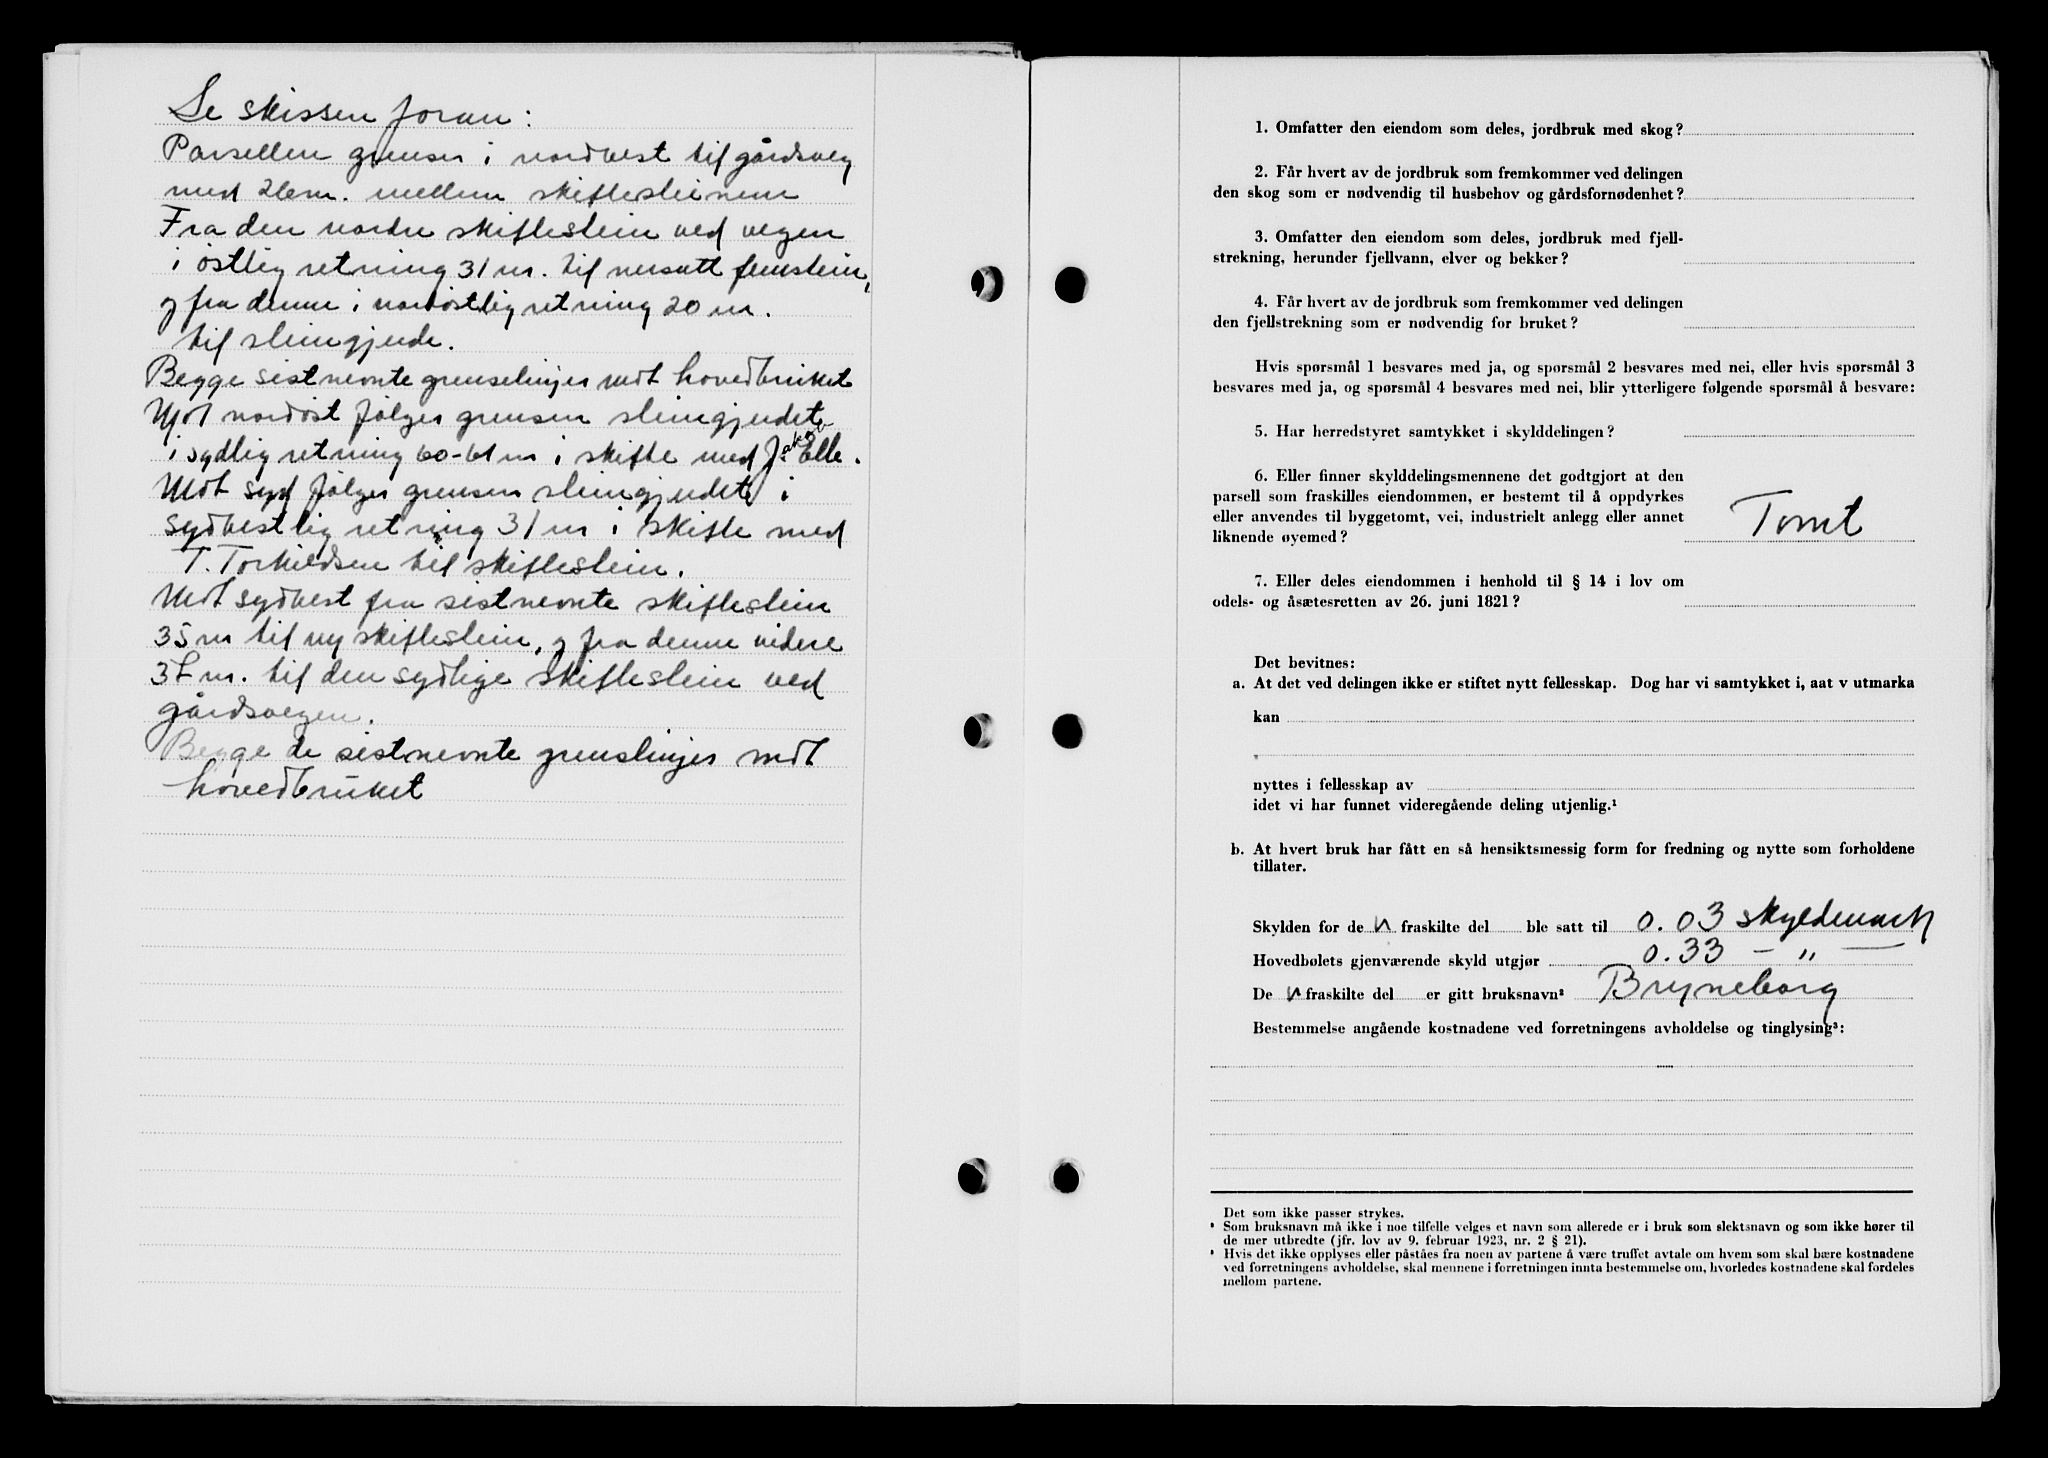 Se skissen foran:
Parsellen grenser i nordvest til gårdsveg
med 26m. mellem skiftesteinene
Fra den nordre skiftestein ved vegen
i østlig retning 31 m. til nersatt
og fra denne i nordøstlig retning 20 m.
til steingjerde.
Begge sistnevnte grenselinjer mot hovedbruket
Mot nordøst følger grensen steingjerdet
i sydlig retning 60-61 m i skifte med Jakob Elle.
Mot syd følger grensen steingjerdet i
sydvestlig retning 31 m i skifte med
T. Torkildsen til skiftestein.
Mot sydvest fra sistnevnte skiftestein
35 m til ny skiftestein, og fra denne videre
37 m. til den sydlige skiftestein ved
gårdsvegen.
Begge de sistnevnte grenslinjer mot
hovedbruket
1. Omfatter den eiendom som deles, jordbruk med skog?
2. Får hvert av de jordbruk som fremkommer ved delingen
den skog som er nødvendig til husbehov og gårdsfornødenhet?
3. Omfatter den eiendom som deles, jordbruk med fjell-
strekning, herunder fjellvann, elver og bekker?
4. Får hvert av de jordbruk som fremkommer ved delingen
den fjellstrekning som er nødvendig for bruket?
Hvis spørsmål 1 besvares med ja, og spørsmål 2 besvares med nei, eller hvis spørsmål 3
besvares med ja, og spørsmål 4 besvares med nei, blir ytterligere følgende spørsmål å besvare:
5. Har herredstyret samtykket i skylddelingen?
6. Eller finner skylddelingsmennene det godtgjort at den
parsell som fraskilles eiendommen, er bestemt til å oppdyrkes
eller anvendes til byggetomt, vei, industrielt anlegg eller annet
liknende øyemed? Tomt
7. Eller deles eiendommen i henhold til § 14 i lov om
odels- og åsætesretten av 26. juni 1821?
Det bevitnes:
a. At det ved delingen ikke er stiftet nytt fellesskap. Dog har vi samtykket i, aat v utmarka
kan
nyttes i fellesskap av
idet vi har funnet videregående deling utjenlig.¹
b. At hvert bruk har fått en så hensiktsmessig form for fredning og nytte som forholdene
tillater.
Skylden for de n fraskilte del ble satt til 0.03 skyldmark
Hovedbølets gjenværende skyld utgjør 0.33 — „ —
De n fraskilte del er gitt bruksnavn² Bryneborg
Bestemmelse angående kostnadene ved forretningens avholdelse og tinglysing³:
Det som ikke passer strykes.
² Som bruksnavn må ikke i noe tilfelle velges et navn som allerede er i bruk som slektsnavn og som ikke hører til
de mer utbredte (jfr. lov av 9. februar 1923, nr. 2 § 21).
³ Hvis det ikke opplyses eller påståes fra noen av partene å være truffet avtale om hvem som skal bære kostnadene
ved forretningens avholdelse, skal mennene i forretningen innta bestemmelse om, hvorledes kostnadene skal fordeles
mellom partene.